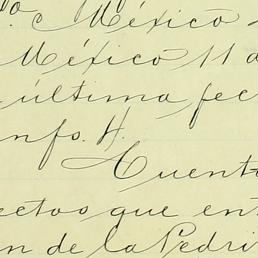 º. México
México 11 d
última fec
nfo. H.
Cuenta
ectos que ent
n de la Pedri